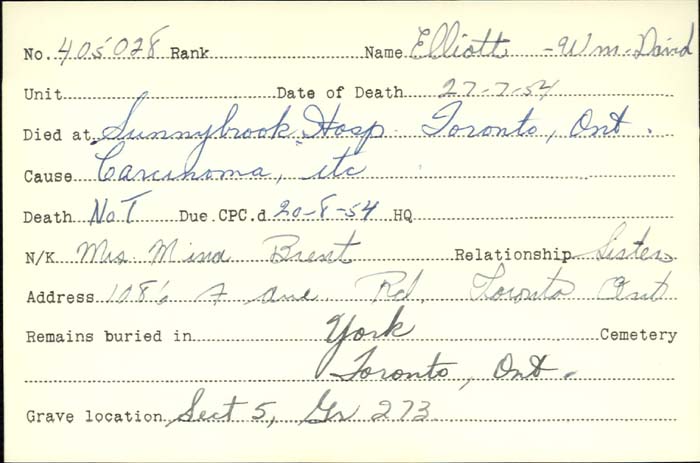 No. 405028 Rank Name Elliott - Wm. David
Unit Date of Death 27-7-54
Died at Sunnybrook Hosp. Toronto, Ont.
Cause Carcinoma, etc
Death Not Due CPC.d. 20-8-54 HQ
N/K Mrs. Mina Brent Relationship Sister
Address 108 Ave Rd. Toronto Ont
Remains buried in York Cemetery
Toronto, Ont.
Grave location Sect 5, Gr 273